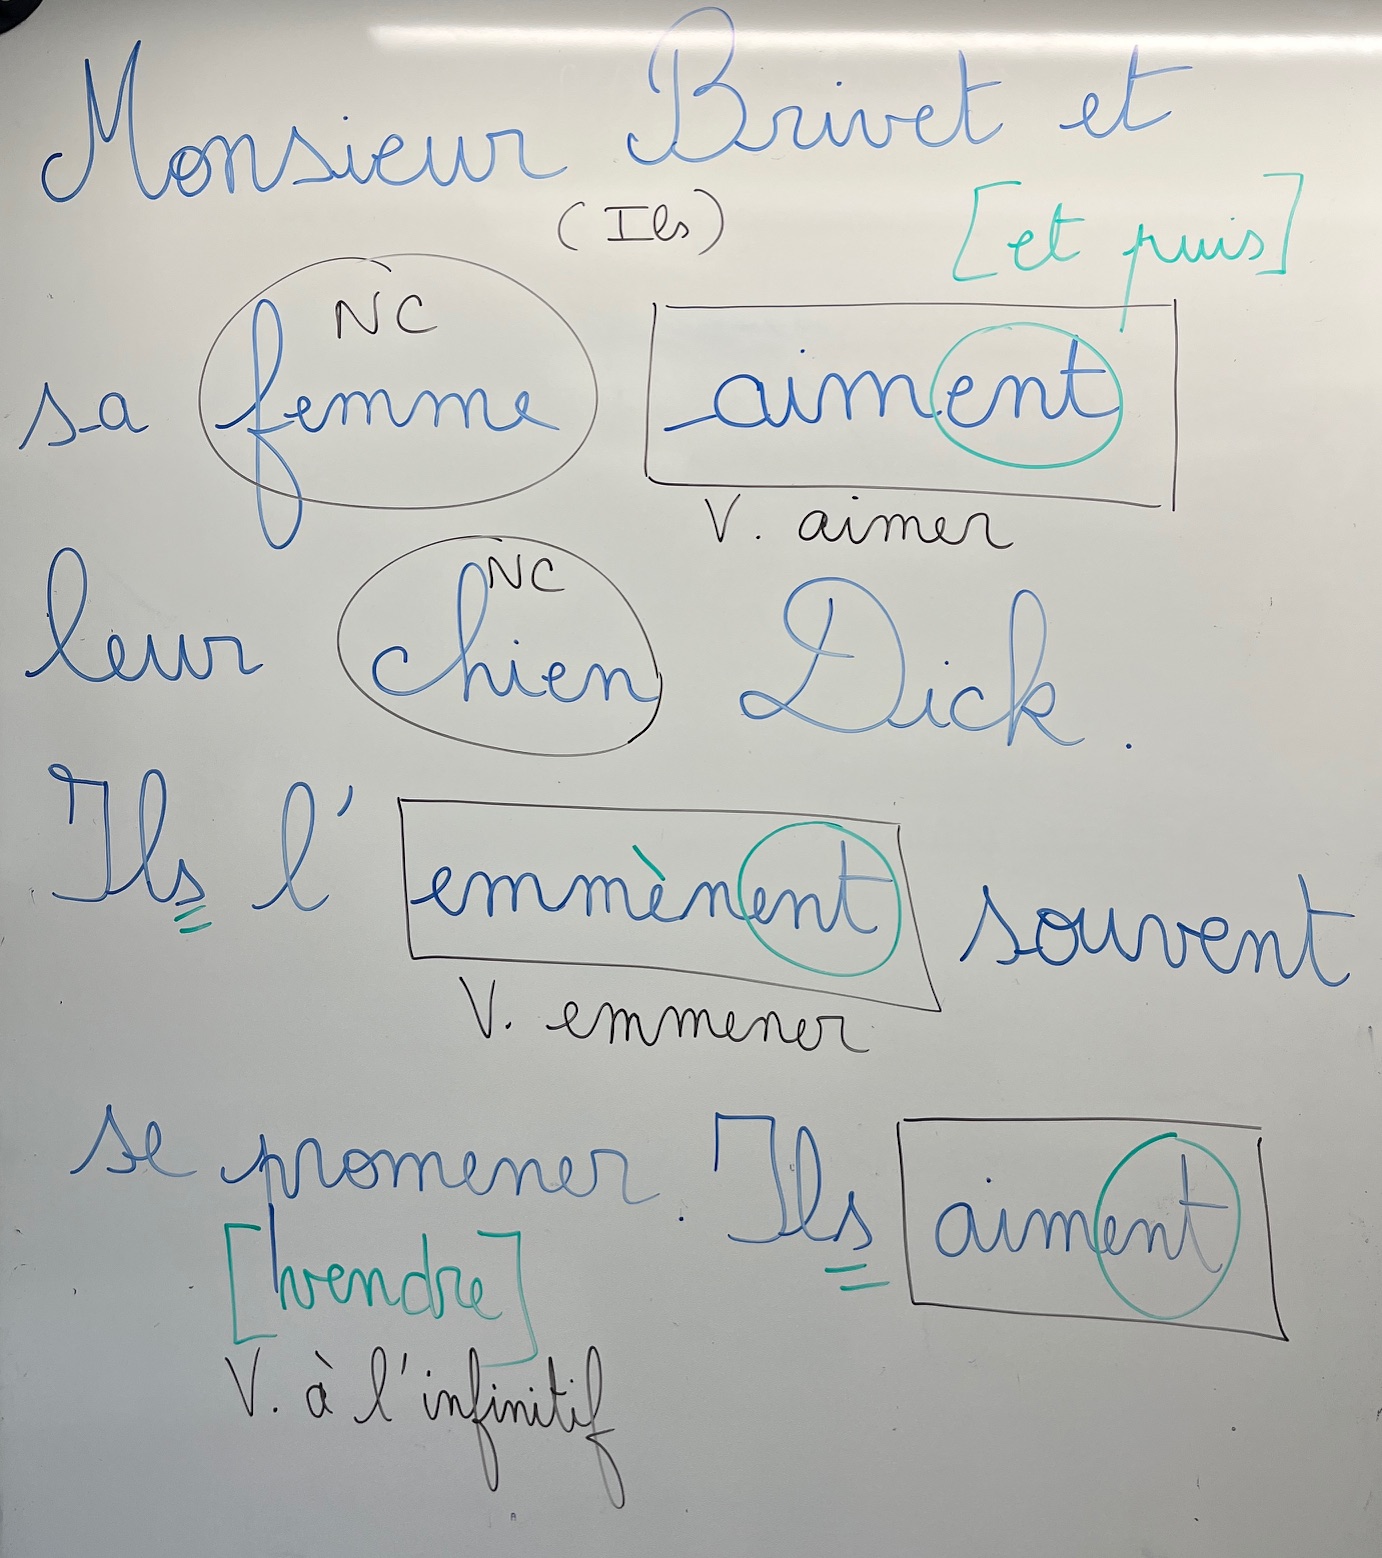 Monsieur Brivet et
(Ils) [et puis]
NC
sa femme aiment
V. aimer
NC
leur chien Dick.
Ils l'emmènent souvent
V. emmener
se promener. Ils aiment
[vendre]
V. à l'infinitif